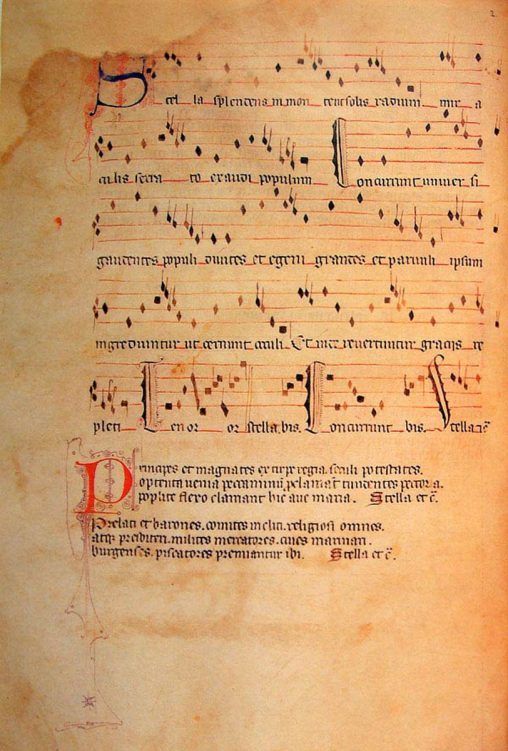 2
Stel la splendens in mon te ut solis radium mir a
culis serra to exaudi populum Concurrunt univer si
gaudentes populi divites et egeni grandes et parvuli ipsum
ingrediuntur ut cernunt oculi Et inde revertuntur graciis re
pleti Tenor or stella bis. Concurrunt bis. Stella
Principes et magnates ex stirpe regia. seculi potestates.
optenta venia peccaminum tundentes pectora.
poplite flexo clamant hic ave maria. Stella et c̄.
Prelati et barones. comites incliti. religiosi omnes.
atq; presbiteri. milites mercatores. cives marinari.
burgenses. piscatores premiantur ibi. Stella et c̄.